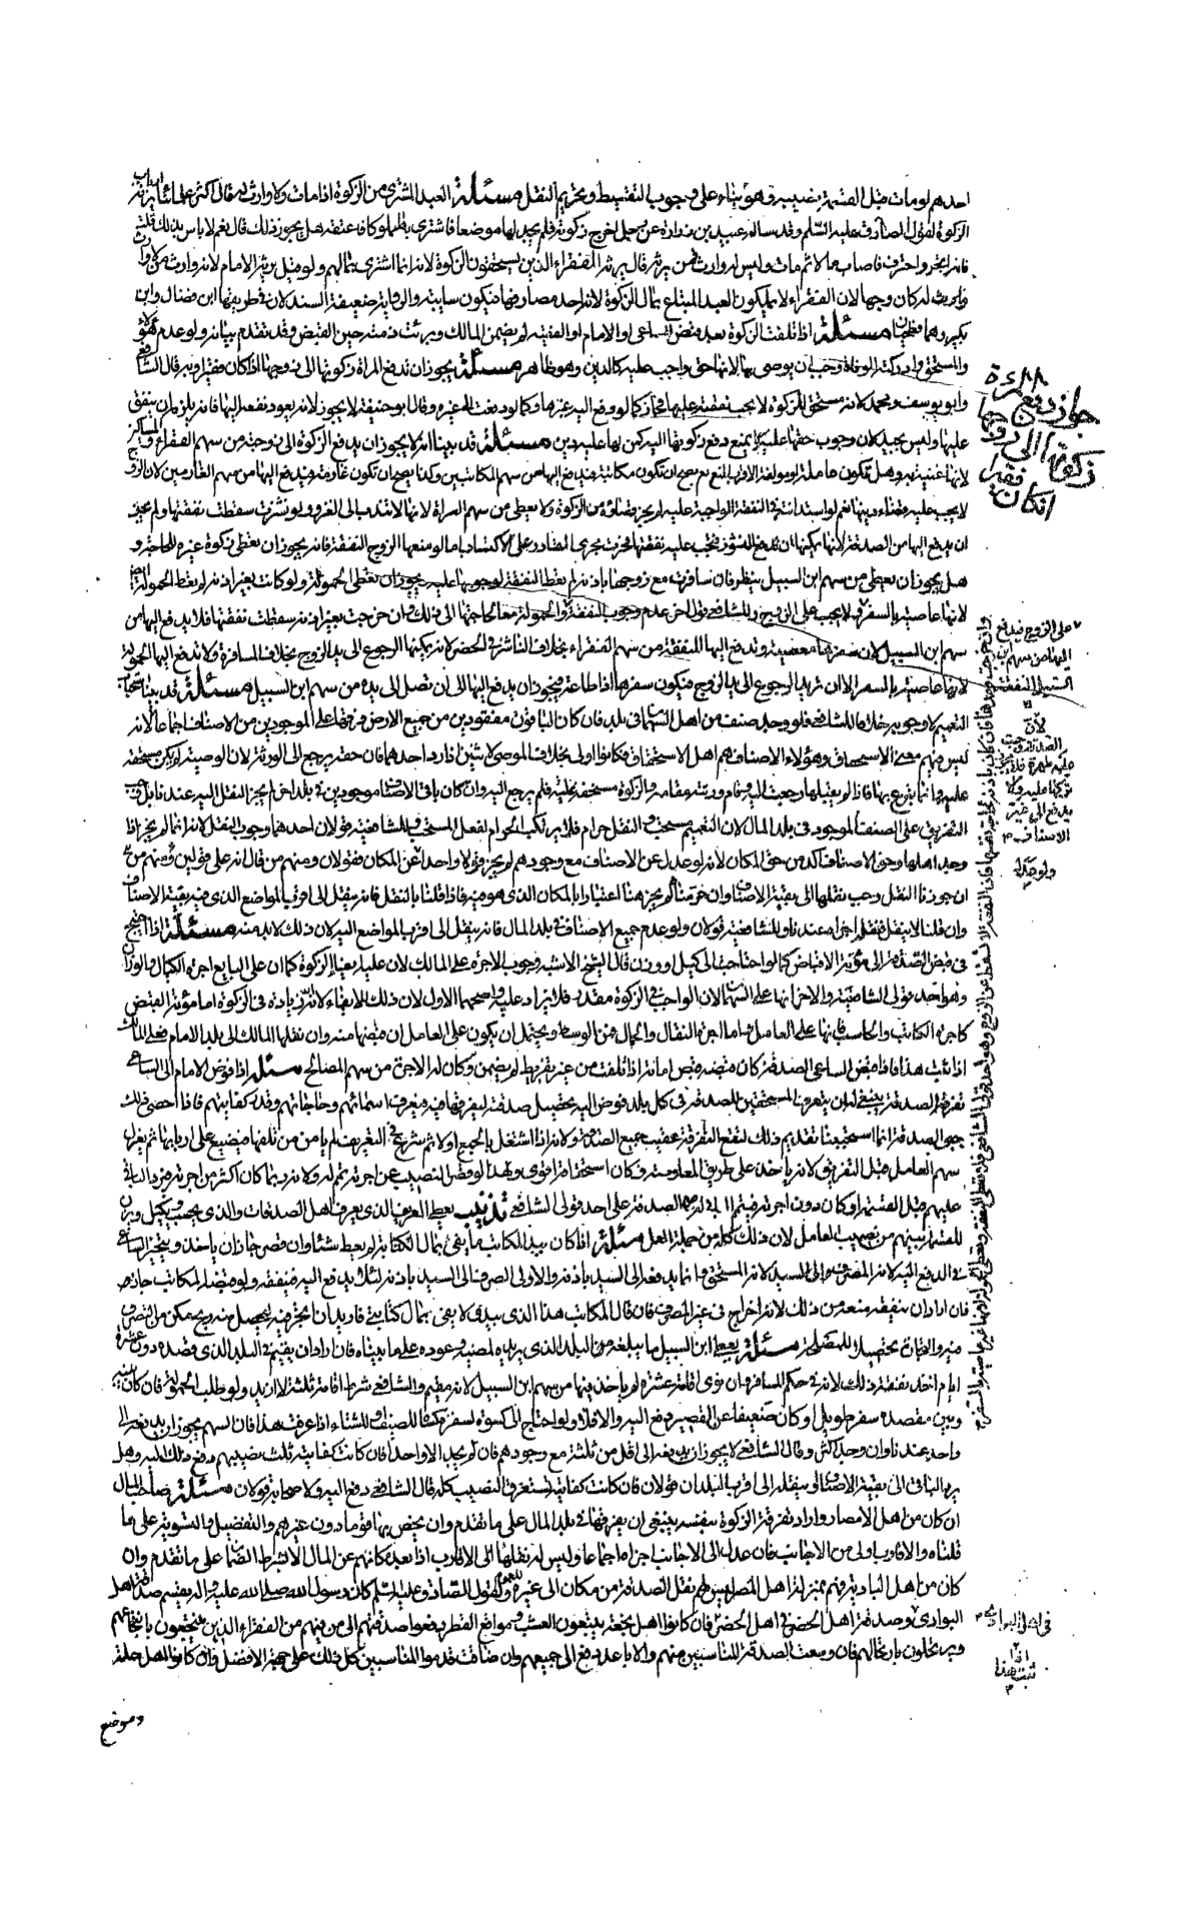 احدهم لو مات قبل القسمة وغيبه وهو بناء على وجوب التقسيط وتحريم النقل مسئلة العبد المشترى من الزكوة اذا مات ولا وارث له قال اكثر علمائنا يرثه ارباب
الزكوة لقول الصادق عليه السلم وقد ساله عبيد بن زرارة عن رجل اخرج زكوته فلم يجد لها موضعا فاشترى بها مملوكا فاعتقه هل يجوز ذلك قال نعم لا باس بذلك قلت
فانه اتجر واحترف فاصاب مالا ثم مات وليس له وارث فمن يرثه قال يرثه الفقراء الذين يستحقون الزكوة لانه انما اشترى بمالهم ولو قيل يرثه الامام لانه وارث من لا وارث
له كان وجها لان الفقراء لا يملكون العبد المبتاع بمال الزكوة لانه احد مصارفها فيكون سايبة والرواية ضعيفة السند لان في طريقها ابن فضال وابن
بكير وهما فطحيان مسئلة اذا تلفت الزكوة بعد قبض الساعي او الامام او الفقيه لم يضمن المالك وبرئت ذمته حين القبض وقد تقدم بيانه ولو عدم هؤلاء
والمستحق وادركته الوفاة وجب ان يوصي بها لانها حق واجب عليه كالدين وهو ظاهر مسئلة يجوز ان تدفع المراة زكوتها الى زوجها اذا كان فقيرا وبه قال الشافعي
وابو يوسف ومحمد لانه مستحق للزكوة لا يجب نفقته عليها فجاز كما لو دفع اليه غيرها وكما لو دفعت الى غيره وقال ابو حنيفة لا يجوز لانه يعود نفعه اليها فانه يلزمان ينفق
عليها وليس بجيد لان وجوب حقها عليه لا يمنع دفع زكوتها اليه كمن لها عليه دين مسئلة قد بينا انه لا يجوز ان يدفع الزكوة الى زوجته من سهم الفقراء والمساكين
لانها غنية به وهل تكون عاملة او مؤلفة الاقرب المنع نعم يصح ان تكون مكاتبة فيدفع اليها من سهم المكاتبين وكذا يصح ان تكون غارمة فيدفع اليها من سهم الغارمين لان الزوج
لا يجب عليه قضاء دينها نعم لو استدانت في النفقة الواجبة عليه لم يجز قضاؤه من الزكوة ولا يعطى من سهم الغزاة لانها لا تندب الى الغزو ولو نشزت سقطت نفقتها ولم يجز
ان يدفع اليها من الصدقة لانها يمكنها ان تدع النشوز فتجب عليه نفقتها فجرت مجرى القادر على الاكتساب اما لو منعها الزوج النفقة فانه يجوز ان يعطى زكوة غيره للحاجة و
هل يجوز ان يعطى من سهم ابن السبيل ينظر فان سافرت مع زوجها باذنه لم يعط النفقة لوجوبها عليه ويجوز ان يعطى الحمولة ولو كانت بغير اذنه لم يعط الحمولة ايضا
لانها عاصية بالسفر ولا يجب على الزوج وللشافعي قول اخر عدم وجوب النفقة والحمولة معا لحاجتها الى ذلك وان خرجت بغير اذنه سقطت نفقتها فلا يدفع اليها من
سهم ابن السبيل لان سفرها معصية وتدفع اليها للنفقة من سهم الفقراء بخلاف الناشز في الحضر لانه يمكنها الرجوع الى يد الزوج بخلاف المسافرة ولا تدفع اليها الحمولة
لانها عاصية بالسفر الا ان تريد الرجوع الى يد الزوج فيكون سفرها طاعة فيجوز ان يدفع اليها الى ان تصل الى يده من سهم ابن السبيل مسئلة قد بينا استحباب
التعميم لا وجوبه خلافا للشافعي فلو وجد صنف من اهل السهمان في بلد فان كان الباقون مفقودين من جميع الارض فرقها على الموجودين من الاصناف اجماعا لانه
ليس فيهم معنى الاستحقاق وهؤلاء الاصناف هم اهل الاستحقاق فكانوا اولى بخلاف الموصي لاثنين اذا رد احدهما فان حقه يرجع الى الورثة لان الوصية لم يكن مستحقة
عليه وانما تبرع بها فاذا لم يقبلها رجعت اليه وقام ورثته مقامه والزكوة مستحقة عليه فلم يرجع اليه وان كان باقي الاصناف موجودين في بلد اخر لم يجز النقل اليه عندنا بل وجب
التفريق على الصنف الموجود في بلد المال لان التعميم مستحب والنقل حرام فلا يرتكب الحرام لفعل المستحب وللشافعية قولان احدهما وجوب النقل لانه انما لم يجز اذا
وجد اهلها وحق الاصناف آكد من حق المكان لانه لو عدل عن الاصناف مع وجودهم لم يجز قولا واحدا وعن المكان قولان ومنهم من قال انه على قولين ومنهم من قال
ان جوزنا النقل وجب نقلها الى بقية الاصناف وان حرمناه لم يجز هنا اعتبارا بالمكان الذي هو فيه فاذا قلنا بالنقل فانه ينقل الى اقرب المواضع الذي فيه بقية الاصناف
وان قلنا لا ينقل فنقل اجزاه عندنا وللشافعية قولان ولو عدم جميع الاصناف في بلد المال فانه ينقل الى اقرب المواضع اليه لان ذلك لا بد منه مسئلة اذا احتيج
في قبض الصدقة الى مؤنة الاقباض كما لو احتاجت الى كيل او وزن قال الشيخ الاشبه وجوب الاجرة على المالك لان عليه ايفاء الزكوة كما ان على البايع اجرة الكيال والوزان
وهو احد قولي الشافعية والاخر انها على السهمان لان الواجب في الزكوة مقدر فلا يزاد عليه واصحهما الاول لان ذلك للايفاء لا انه زيادة في الزكوة اما مؤنة القبض
كاجرة الكاتب والحاسب فانها على العامل واما اجرة النقال والحمال فمن الوسط ويحتمل ان يكون على العامل ان قبضها منه وان نقلها المالك الى بلد الامام فعلى المالك
اذا ثبت هذا فاذا قبض الساعي الصدقة كان قبضه قبض امانة اذا تلفت من غير تفريط لم يضمن وكان له الاجرة من سهم المصالح مسئلة اذا فوض الامام الى الساعي
تفرقة الصدقة ينبغي له ان يتعرف المستحقين للصدقة في كل بلد فوض اليه تحصيل صدقته ليفرقها فيه فيعرف اسمائهم وحاجاتهم وقدر كفايتهم فاذا احصى ذلك
جبى الصدقة وانما استحببنا تقديم ذلك لتقع التفرقة عقيب جميع الصدقة ولانه اذا اشتغل بالجمع اولا ثم شرع في التعريف لم يامن من تلفها فيضيع على اربابها ثم يعزل
سهم العامل قبل التفريق لانه ياخذ على طريق المعاوضة فكان استحقاقه اقوى ولهذا لو قصر النصيب عن اجرته تمم له ولانه ربما كان اكثر من اجرته فيرد الباقي
عليهم قبل القسمة او كان دون اجرته فيتم الباقي له من الصدقة على احد قولي الشافعي تذنيب يعطى العريف الذي يعرف اهل الصدقات والذي يحسب ويكيل ويزن
للقسمة بينهم من نصيب العامل لان ذلك كله من جملة العمل مسئلة اذا كان بيد المكاتب ما يفي بمال الكتابة لم يعط شئا وان قصر جاز ان ياخذ ويتخير الساعي
في الدفع اليه لانه المصرف والى السيد لانه المستحق وانما يدفعه الى السيد باذنه والاولى الصرف الى السيد باذنه لئلا يدفع اليه فينفقه ولو قبضه المكاتب جاز ص
فان اراد ان ينفقه منعه من ذلك لانه اخراج في غير المصرف فان قال المكاتب هذا الذي بيدي لا يفي بمال كتابتي فاريد ان اتجر فيه ليحصل منه ربح مكن من التصرف
فيه والتجارة تحصيلا للمصلحة مسئلة يعطى ابن السبيل ما يبلغه من البلد الذي يريده لمضيه وعوده على ما بيناه فان اراد ان يقيم في البلد الذي قصده دون عشرة
ايام اخذ نفقته ذلك لانه في حكم المسافر وان نوى اقامة عشرة لم ياخذ فيها من سهم ابن السبيل لانه مقيم والشافعي شرط اقامة ثلثة لا ازيد ولو طلب الحمولة فان كان بينه
وبين مقصده سفر طويل او كان ضعيفا عن القصير دفع اليه والا فلا ولو احتاج الى كسوة لسفره كفاه للصيف والشتاء اذا عرفت هذا فان السهم يجوز ان يدفع الى
واحد عندنا وان وجد اكثر وقال الشافعي لا يجوز ان يدفع الى اقل من ثلثة مع وجودهم فان لم يجد الا واحدا فان كانت كفايته ثلث نصيبهم دفع ذلك اليه وهل
يرد الباقي الى بقية الاصناف او ينقله الى اقرب البلدان قولان فان كانت كفايته تستغرق النصيب كله قال الشافعي دفع اليه ولاصحابه قولان مسئلة صاحب المال
ان كان من اهل الامصار واراد تفرقة الزكوة بنفسه ينبغي ان يفرقها في بلد المال على ما تقدم وان يخص بها قوما دون غيرهم والتفضيل والتسوية على ما
قلناه والاقارب اولى من الاجانب فان عدل الى الاجانب اجزاه اجماعا وليس له نقلها الى الاقارب اذا بعد مكانهم عن المال الا بشرط الضمان على ما تقدم وان
كان من اهل البادية فهم بمنزلة اهل المصر ليس لهم نقل الصدقة من مكان الى غيره لعموم قول الصادق عليه السلم كان رسول الله صلى الله عليه واله يقسم صدقة اهل
البوادي وصدقة اهل الحضر في اهل الحضر فان كانوا اهل نجعة يتبعون العشب ومواقع القطر دفعوا صدقتهم الى من فيهم من الفقراء الذين ينتجعون بانتجاعهم
ويرتحلون بارتحالهم فان وسعت الصدقة للمناسبين منهم والاباعد دفع الى جميعهم وان ضاقت قدموا المناسبين كل ذلك على جهة الافضل فان كانوا اهل حلة
وموضع
جواز دفع المرءة
زكوتها الى زوجها
ان كان فقيرا
على الزوج فيدفع
اليها من سهم ابن
السبيل النفقة
لان
الصدقة وجبت
بدفع الى غير
الاصناف
ولو وجد
في اهل البوادي
اذا
ثبت هذا